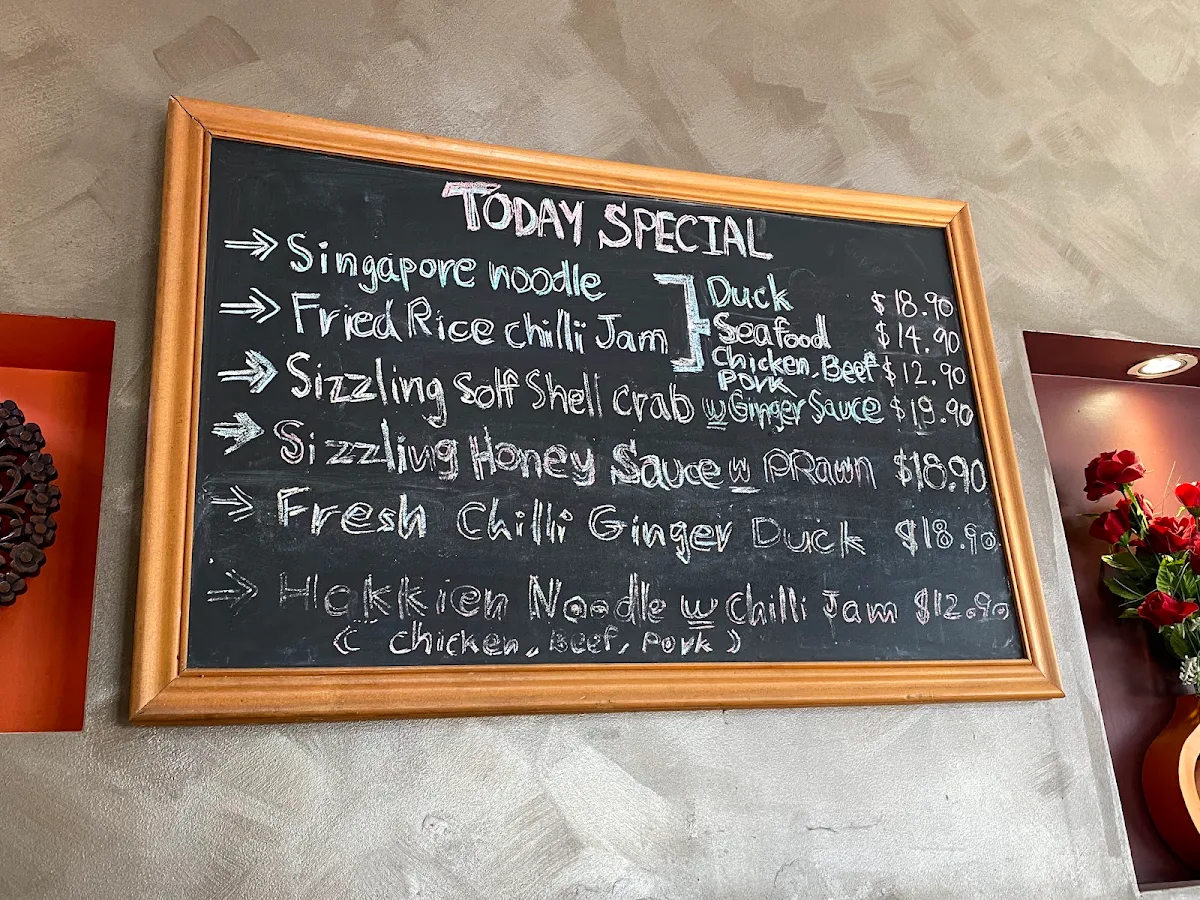 TODAY SPECIAL
⇒ Singapore noodle
⇒ Fried Rice chilli Jam
Duck $18.90
Seafood $14.90
Chicken, Beef
Pork $12.90
⇒ Sizzling Soft Shell Crab w Ginger Sauce $19.90
⇒ Sizzling Honey Sauce w PRawn $18.90
⇒ Fresh Chilli Ginger Duck $18.90
⇒ Hokkien Noodle w Chilli Jam $12.90
( chicken, Beef, Pork )